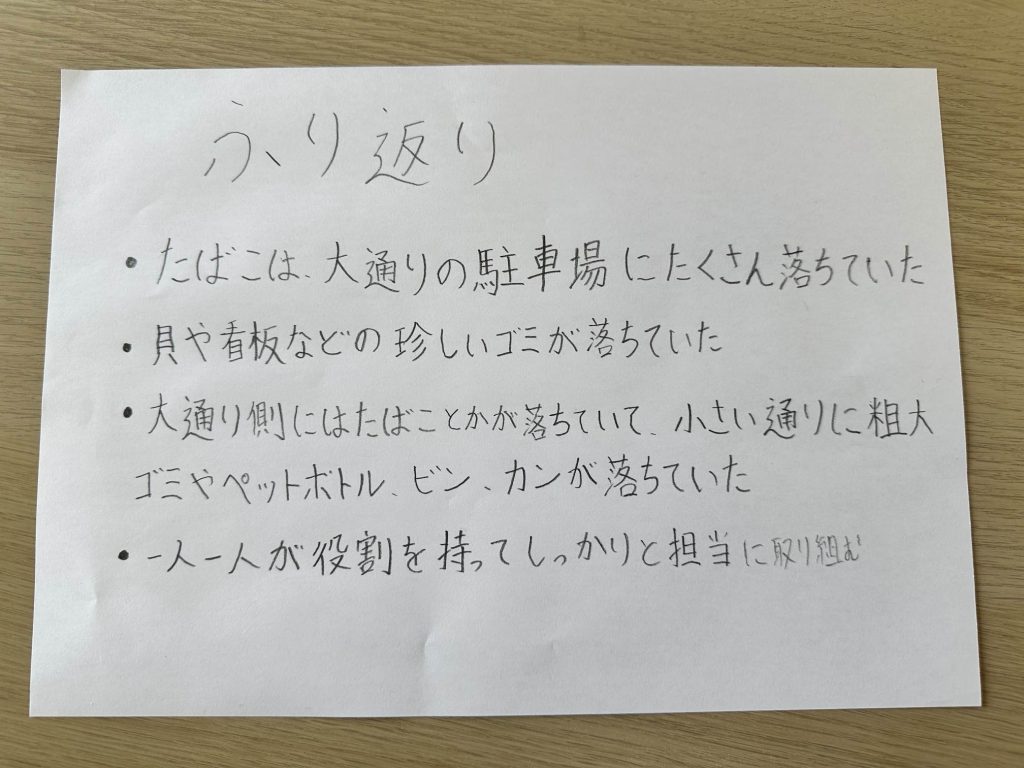 ふり返り
・たばこは、大通りの駐車場にたくさん落ちていた
・貝や看板などの珍しいゴミが落ちていた
・大通り側にはたばことかが落ちていて、小さい通りに粗大
ゴミやペットボトル、ビン、カンが落ちていた
・一人一人が役割を持ってしっかりと担当に取り組む